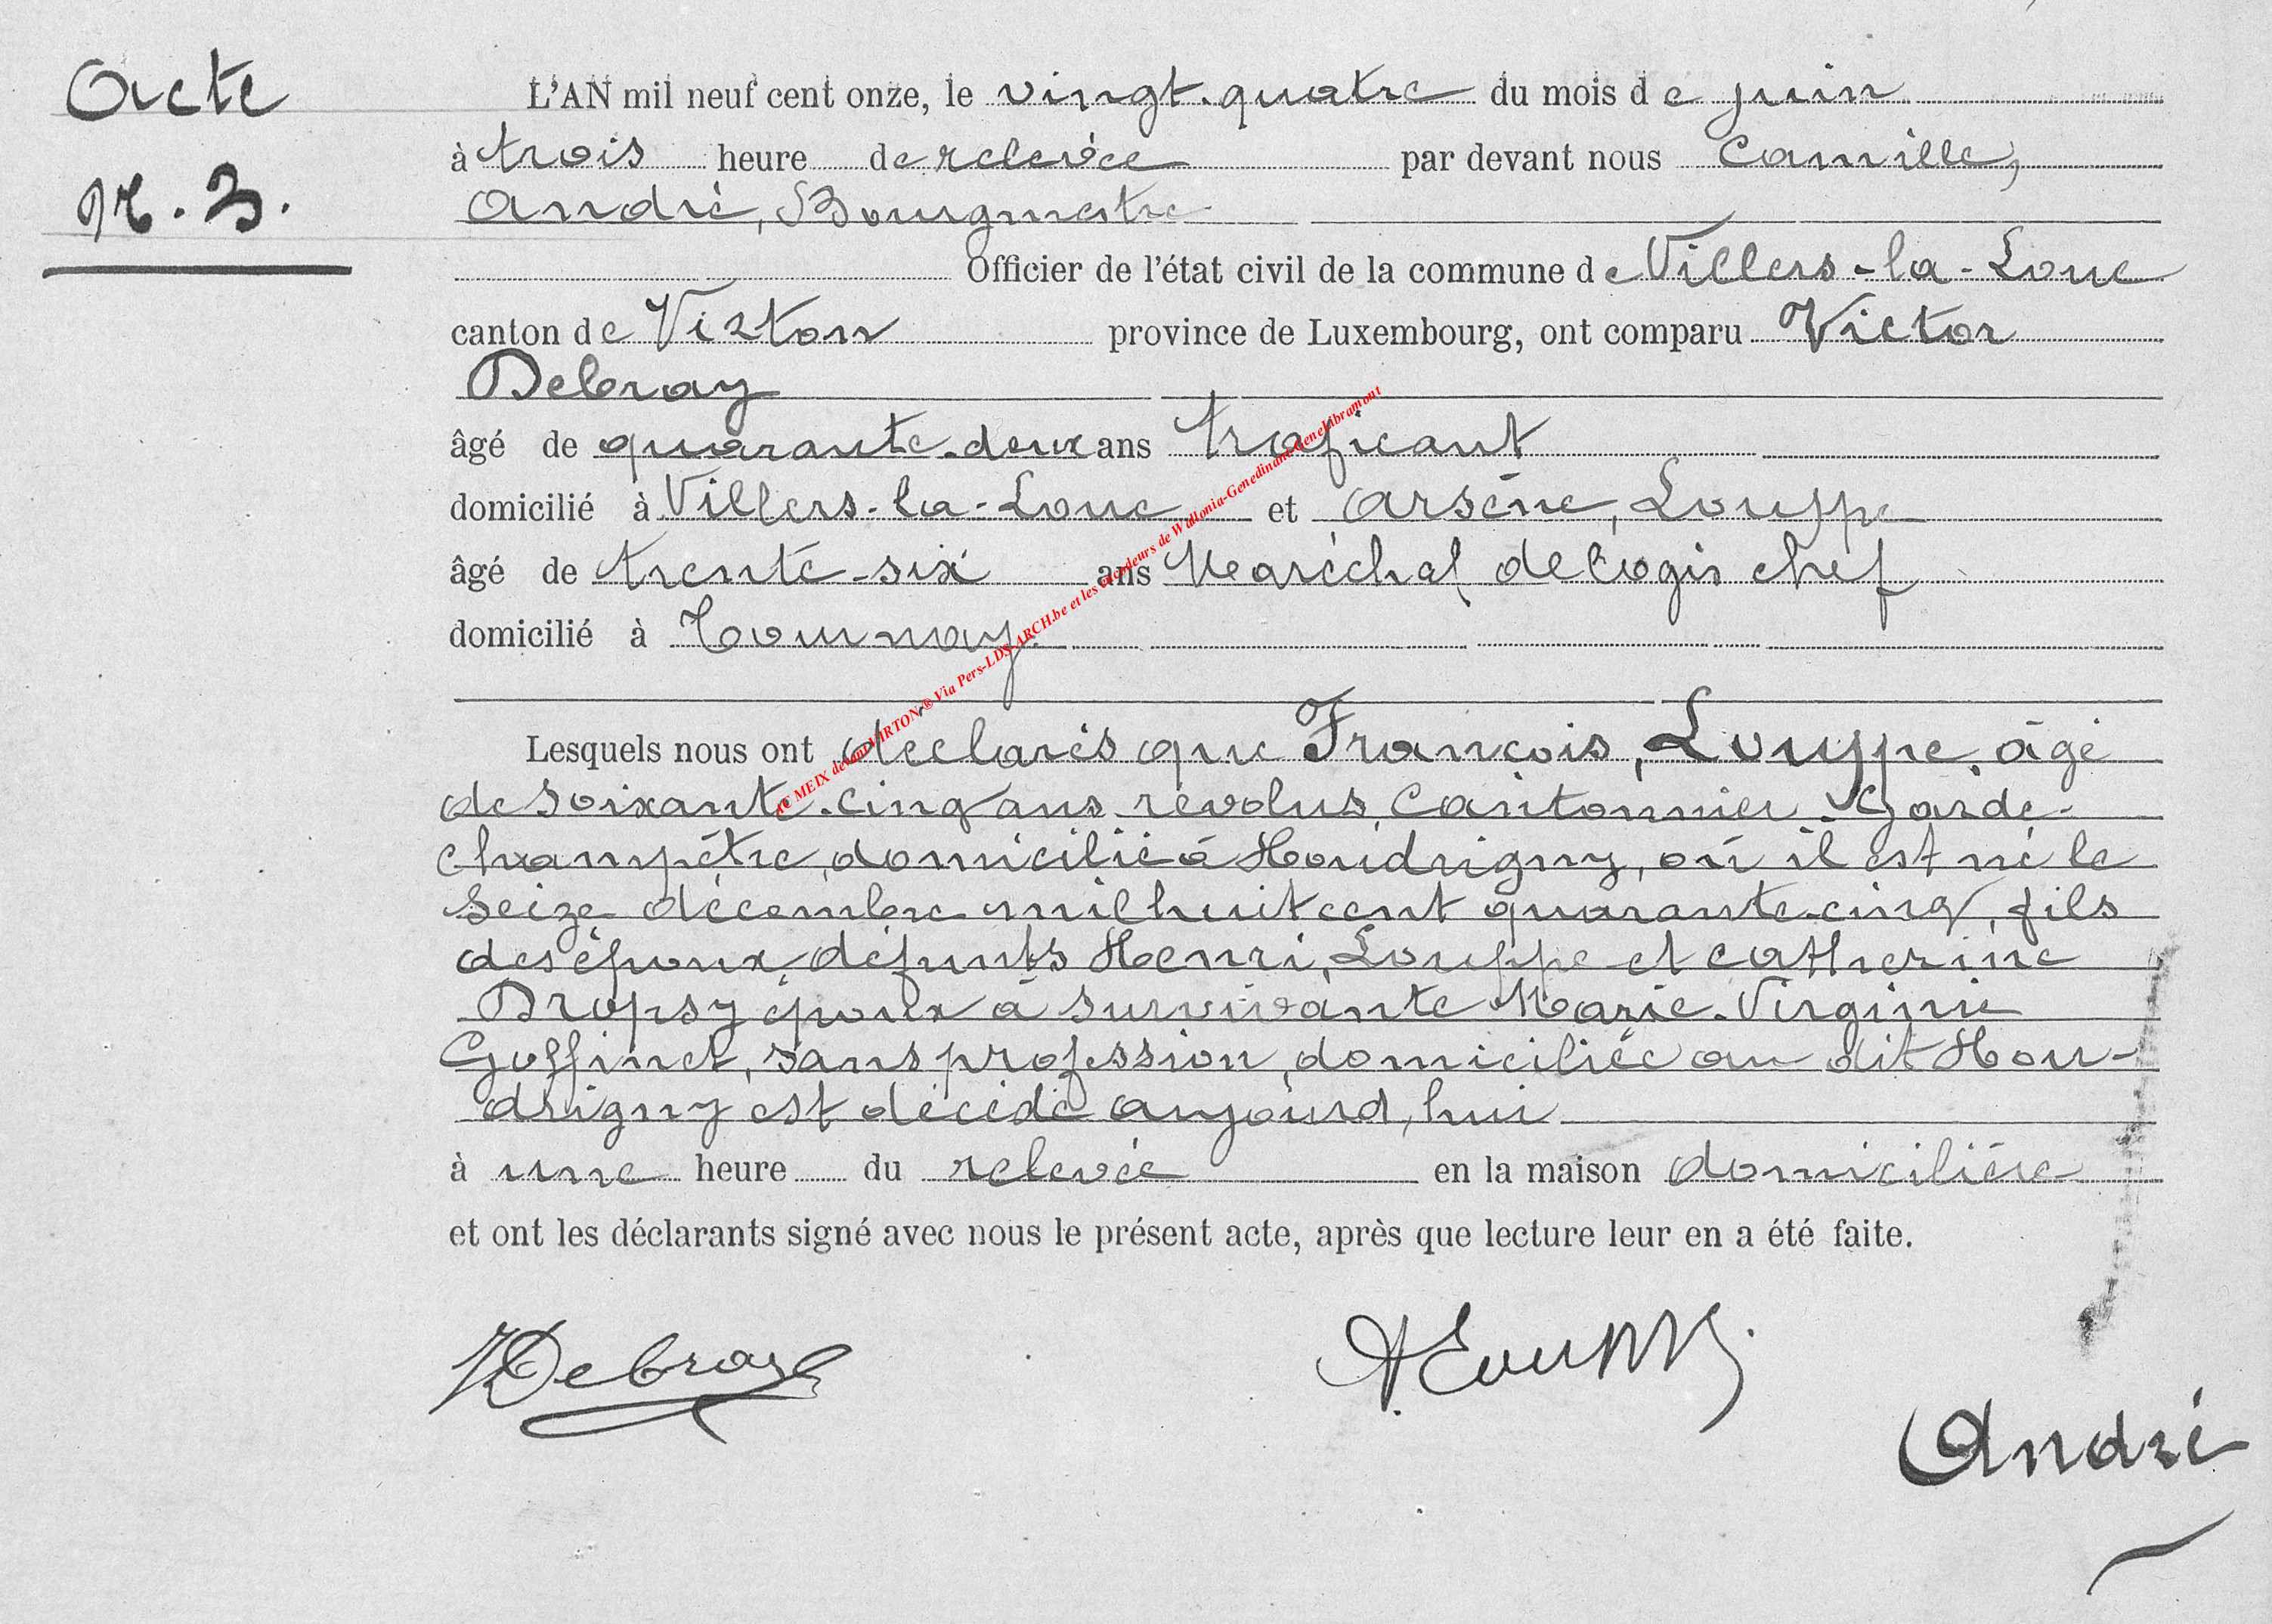 Acte
N. 3.
L'AN mil neuf cent onze, le vingt-quatre du mois de juin
à trois heure de relevée par devant nous Camille,
André, Bourgmestre
Officier de l'état civil de la commune de Villers-la-Loue
canton de Virton province de Luxembourg, ont comparu Victor
Debray
âgé de quarante-deux ans traficant
domicilié à Villers-la-Loue et Arsène, Louppe
âgé de trente-six ans Maréchal de logis chef
domicilié à Tournay.
Lesquels nous ont déclarés que François, Louppe, âgé
de soixante-cinq ans révolus, Cantonnier-Garde-
champêtre, domicilié à Houdrigny, où il est né le
seize décembre mil huit cent quarante-cinq, fils
des époux défunts Henri, Louppe et Catherine
Dropsy époux à survivante Marie-Virginie
Goffinet, sans profession, domiciliée au dit Hou-
drigny est décédé aujourd'hui
à une heure du relevée en la maison domicilière
et ont les déclarants signé avec nous le présent acte, après que lecture leur en a été faite.
VDebray
ALouppe.
André
AC MEIX devant VIRTON ® Via Pers-LDS-ARCH.be et les encodeurs de Wallonia-Genedinant-Genelibramont